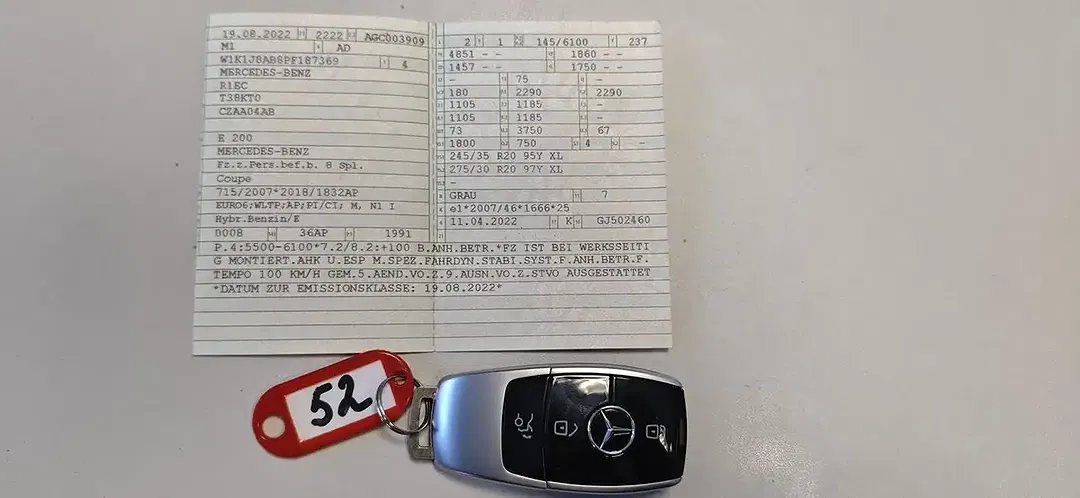 19.08.2022 2222 AGC003909
M1 AD
W1K1J8AB8PF187369 4
MERCEDES-BENZ
R1EC
T38KT0
CZAA04AB
E 200
MERCEDES-BENZ
Fz.z.Pers.bef.b. 8 Spl.
Coupe
715/2007*2018/1832AP
EURO6;WLTP;AP;PI/CI; M, N1 I
Hybr.Benzin/E
0008 36AP 1991
2 1 145/6100 237
4851 - - 1860 - -
1457 - - 1750 - -
- 75 -
180 2290 2290
1105 1185 -
1105 1185 -
73 3750 67
1800 750 4 -
245/35 R20 95Y XL
275/30 R20 97Y XL
-
GRAU 7
e1*2007/46*1666*25
11.04.2022 K GJ502460
P.4:5500-6100*7.2/8.2:+100 B.ANH.BETR.*FZ IST BEI WERKSSEITI
G MONTIERT.AHK U.ESP M.SPEZ.FAHRDYN.STABI.SYST.F.ANH.BETR.F.
TEMPO 100 KM/H GEM.5.AEND.VO.Z.9.AUSN.VO.Z.STVO AUSGESTATTET
*DATUM ZUR EMISSIONSKLASSE: 19.08.2022*
52